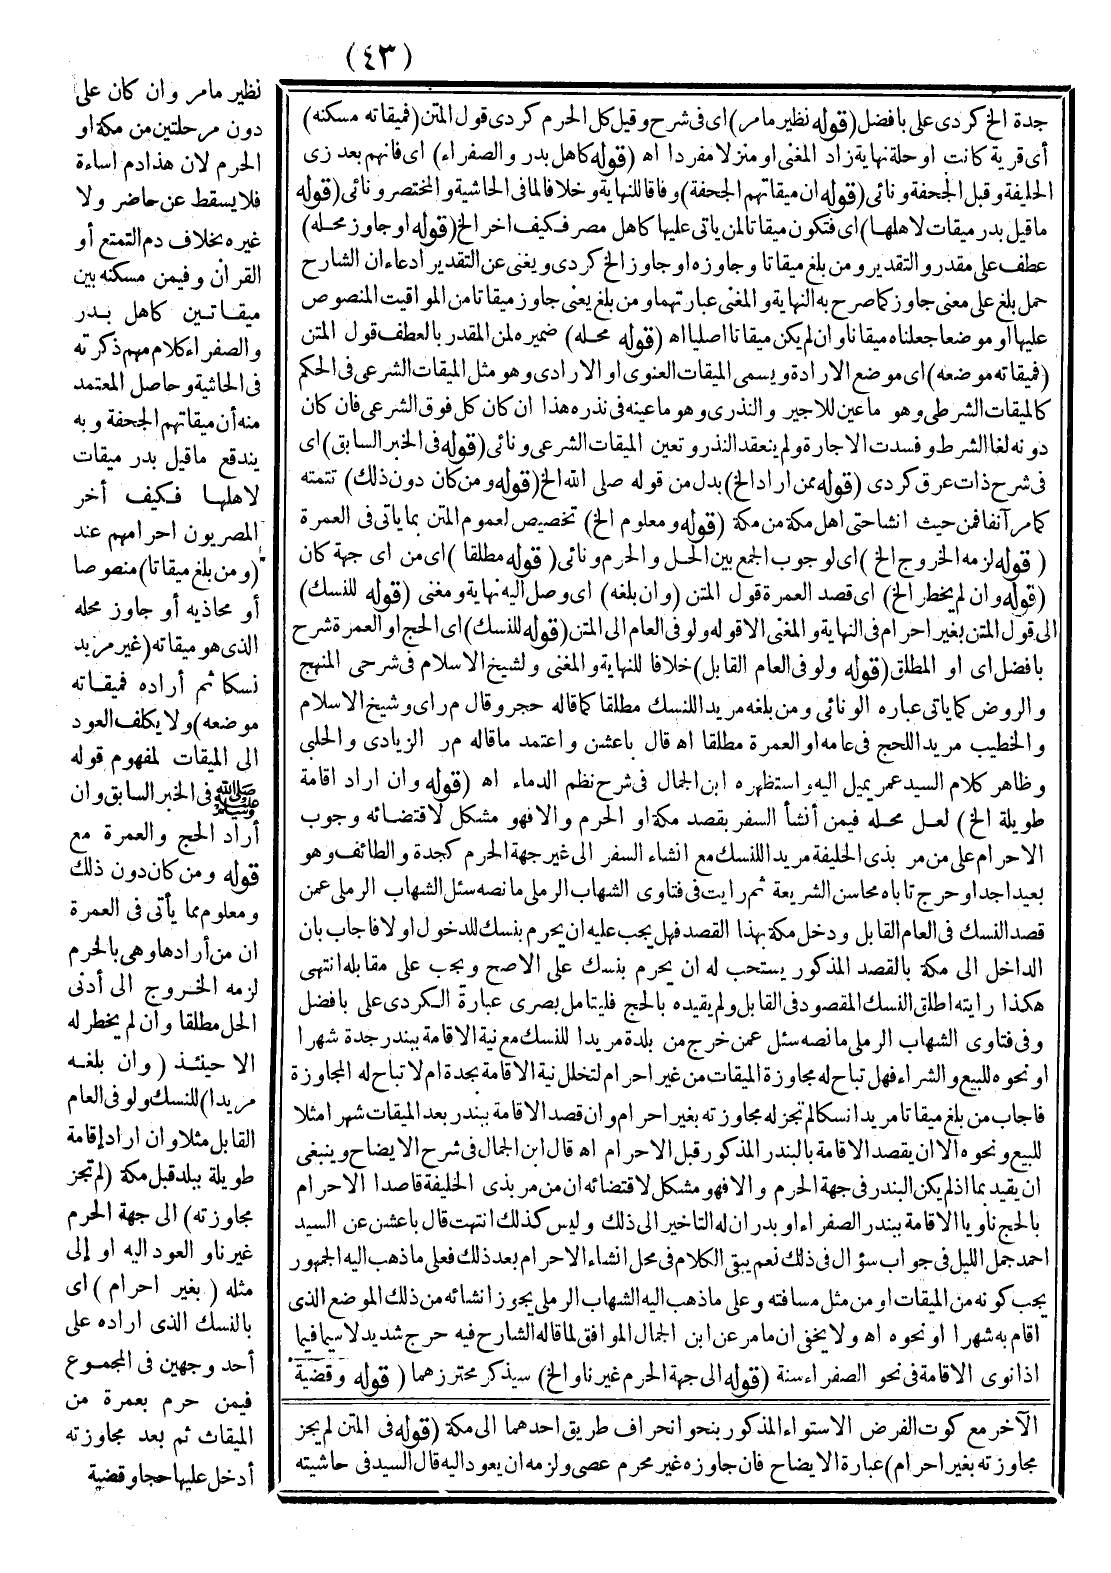 (٤٣)
جدة الخ كردى على بافضل (قوله نظير مامر) اى فى شرح وقيل كل الحرم كردى قول المتن (فميقاته مسكنه)
أى قرية كانت او حلة نهاية زاد المغنى او منزلا مفردا اه (قوله كاهل بدر والصفراء) اى فانهم بعد زى
الحليفة وقبل الجحفة ونائى (قوله ان ميقاتهم الجحفة) وفاقا للنهاية وخلافا لما فى الحاشية والمختصر ونائى (قوله
ماقيل بدر ميقات لاهلها) اى فتكون ميقاتا لمن ياتى عليها كاهل مصر فكيف اخر الخ (قوله او جاوز محله)
عطف على مقدر والتقدير ومن بلغ ميقاتا وجاوزه او جاوز الخ كردى ويغنى عن التقدير ادعاء ان الشارح
حمل بلغ على معنى جاوز كما صرح به النهاية والمغنى عبارتهما ومن بلغ يعنى جاوز ميقاتا من المواقيت المنصوص
عليها أو موضعا جعلناه ميقاتا وان لم يكن ميقاتا اصليا اه (قوله محله) ضميره لمن المقدر بالعطف قول المتن
(فميقاته موضعه) اى موضع الارادة ويسمى الميقات العنوى او الارادى وهو مثل الميقات الشرعى فى الحكم
كالميقات الشرطى وهو ماعين للاجير والنذرى وهو ماعينه فى نذره هذا ان كان كل فوق الشرعى فان كان
دونه لغا الشرط وفسدت الاجارة ولم ينعقد النذر وتعين الميقات الشرعى ونائى (قوله فى الخبر السابق) اى
فى شرح ذات عرق كردى (قوله ممن اراد الخ) بدل من قوله صلى الله الخ (قوله ومن كان دون ذلك) تتمته
كمامر آنفا فمن حيث انشا حتى اهل مكة من مكة (قوله ومعلوم الخ) تخصيص لعموم المتن بما ياتى فى العمرة
(قوله لزمه الخروج الخ) اى لوجوب الجمع بين الحل والحرم ونائى (قوله مطلقا) اى من اى جهة كان
(قوله وان لم يخطر الخ) اى قصد العمرة قول المتن (وان بلغه) اى وصل اليه نهاية ومغنى (قوله للنسك)
الى قول المتن بغير احرام فى النهاية والمغنى الا قوله ولو فى العام الى المتن (قوله للنسك) اى الحج او العمرة شرح
بافضل اى او المطلق (قوله ولو فى العام القابل) خلافا للنهاية والمغنى ولشيخ الاسلام فى شرحى المنهج
والروض كما ياتى عباره الونائى ومن بلغه مريدا للنسك مطلقا كما قاله حجر وقال مر اى وشيخ الاسلام
والخطيب مريدا للحج فى عامه او العمرة مطلقا اه قال باعشن واعتمد ماقاله مر الزيادى والحلبى
وظاهر كلام السيد عمر يميل اليه واستظهره ابن الجمال فى شرح نظم الدماء اه (قوله وان اراد اقامة
طويلة الخ) لعل محله فيمن أنشأ السفر بقصد مكة او الحرم والا فهو مشكل لاقتضائه وجوب
الاحرام على من مر بذى الحليفة مريدا للنسك مع انشاء السفر الى غير جهة الحرم كجدة والطائف وهو
بعيد اجدا وحرج تاباه محاسن الشريعة ثم رايت فى فتاوى الشهاب الرملى مانصه سئل الشهاب الرملى عمن
قصد النسك فى العام القابل ودخل مكة بهذا القصد فهل يجب عليه ان يحرم بنسك للدخول او لا فاجاب بان
الداخل الى مكة بالقصد المذكور يستحب له ان يحرم بنسك على الاصح ويجب على مقابله انتهى
هكذا رايته اطلق النسك المقصود فى القابل ولم يقيده بالحج فليتامل بصرى عبارة الكردى على بافضل
وفى فتاوى الشهاب الرملى مانصه سئل عمن خرج من بلدة مريدا للنسك مع نية الاقامة ببندر جدة شهرا
او نحوه للبيع والشراء فهل تباح له مجاوزة الميقات من غير احرام لتخلل نية الاقامة بجدة ام لا تباح له المجاوزة
فاجاب من بلغ ميقاتا مريدا نسكا لم تجز له مجاوزته بغير احرام وان قصد الاقامة ببندر بعد الميقات شهرا مثلا
للبيع ونحوه الا ان يقصد الاقامة بالبندر المذكور قبل الاحرام اه قال ابن الجمال فى شرح الايضاح وينبغى
ان يقيد بما اذلم يكن البندر فى جهة الحرم والا فهو مشكل لاقتضائه ان من مر بذى الحليفة قاصدا الاحرام
بالحج ناويا الاقامة ببندر الصفراء او بدر ان له التاخير الى ذلك وليس كذلك انتهت قال باعشن عن السيد
احمد جمل الليل فى جواب سؤال فى ذلك نعم يبقى الكلام فى محل انشاء الاحرام بعد ذلك فعلى ماذهب اليه الجمهور
يجب كونه من الميقات او من مثل مسافته وعلى ماذهب اليه الشهاب الرملى يجوز انشائه من ذلك الموضع الذى
اقام به شهرا او نحوه اه ولا يخفى ان مامر عن ابن الجمال الموافق لما قاله الشارح فيه حرج شديد لاسيما فيما
اذا نوى الاقامة فى نحو الصفراء سنة (قوله الى جهة الحرم غير ناو الخ) سيذكر محترزهما (قوله وقضية
الآخر مع كوت الفرض الاستواء المذكور بنحو انحراف طريق احدهما الى مكة (قوله فى المتن لم يجز
مجاوزته بغير احرام) عبارة الايضاح فان جاوزه غير محرم عصى ولزمه ان يعود اليه قال السيد فى حاشيته
نظير مامر وان كان على
دون مرحلتين من مكة او
الحرم لان هذا دم اساءة
فلا يسقط عن حاضر ولا
غيره بخلاف دم التمتع أو
القران وفيمن مسكنه بين
ميقاتين كاهل بدر
والصفراء كلام مهم ذكرته
فى الحاشية وحاصل المعتمد
منه أن ميقاتهم الجحفة وبه
يندفع ماقيل بدر ميقات
لاهلها فكيف أخر
المصريون احرامهم عند
(ومن بلغ ميقاتا) منصوصا
أو محاذيه أو جاوز محله
الذى هو ميقاته (غير مريد
نسكا ثم أراده فميقاته
موضعه) ولا يكلف العود
الى الميقات لمفهوم قوله
ﷺ فى الخبر السابق وان
أراد الحج والعمرة مع
قوله ومن كان دون ذلك
ومعلوم مما يأتى فى العمرة
ان من أرادها وهى بالحرم
لزمه الخروج الى أدنى
الحل مطلقا وان لم يخطر له
الا حينئذ (وان بلغه
مريدا) للنسك ولو فى العام
القابل مثلا وان اراد إقامة
طويلة ببلد قبل مكة (لم تجز
مجاوزته) الى جهة الحرم
غير ناو العود اليه او إلى
مثله (بغير احرام) اى
بالنسك الذى اراده على
أحد وجهين فى المجموع
فيمن حرم بعمرة من
الميقاث ثم بعد مجاوزته
أدخل عليها حجا وقضية